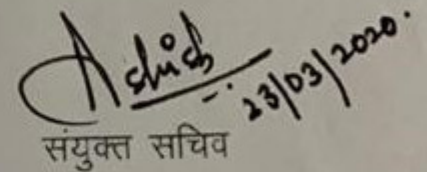 Ashish
23/03/2020.
संयुक्त सचिव